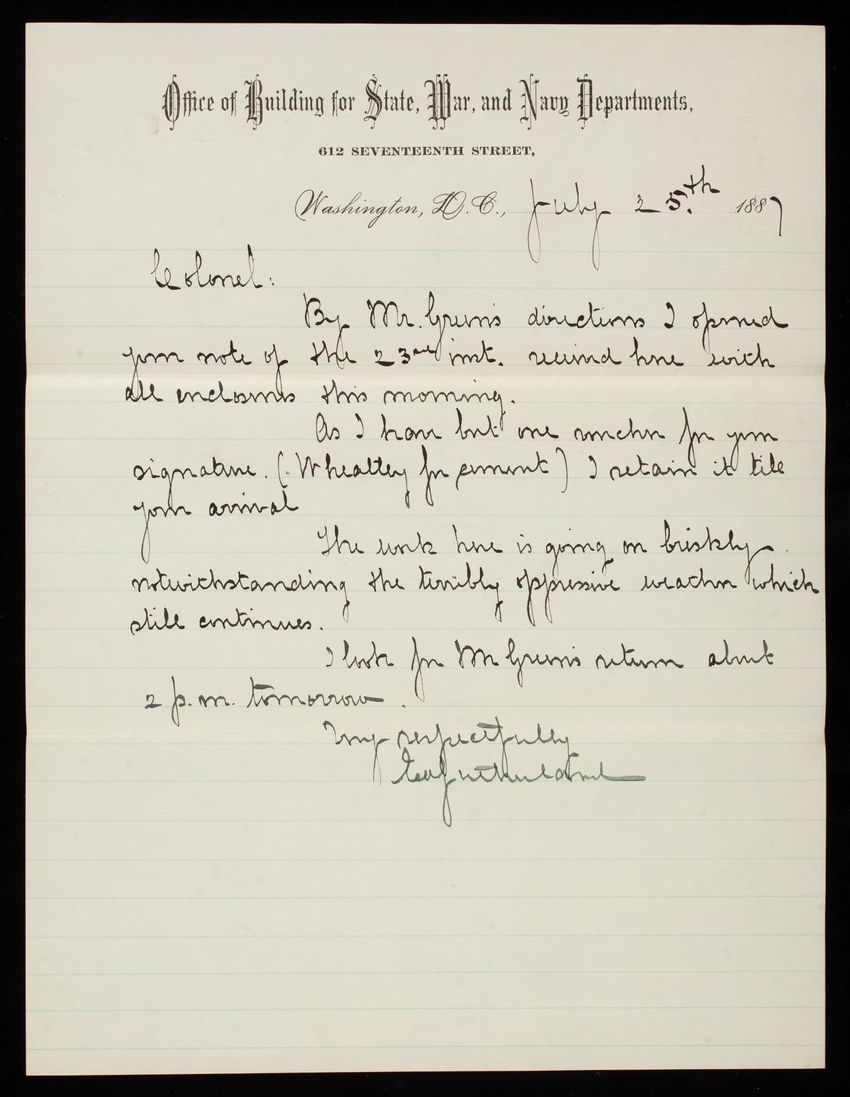 Office of Building for State, War, and Navy Departments,
612 SEVENTEENTH STREET,
Washington, D.C., July 25.th 1887
Colonel:
By Mr. Green's directions I opened
your note of the 23rd inst. received here with
all enclosures this morning.
As I have but one voucher for your
signature. (Wheatley for cement) I retain it till
your arrival
The work here is going on briskly
notwithstanding the terribly oppressive weather which
still continues.
I look for Mr Green's return about
2 p.m. tomorrow.
Very respectfully